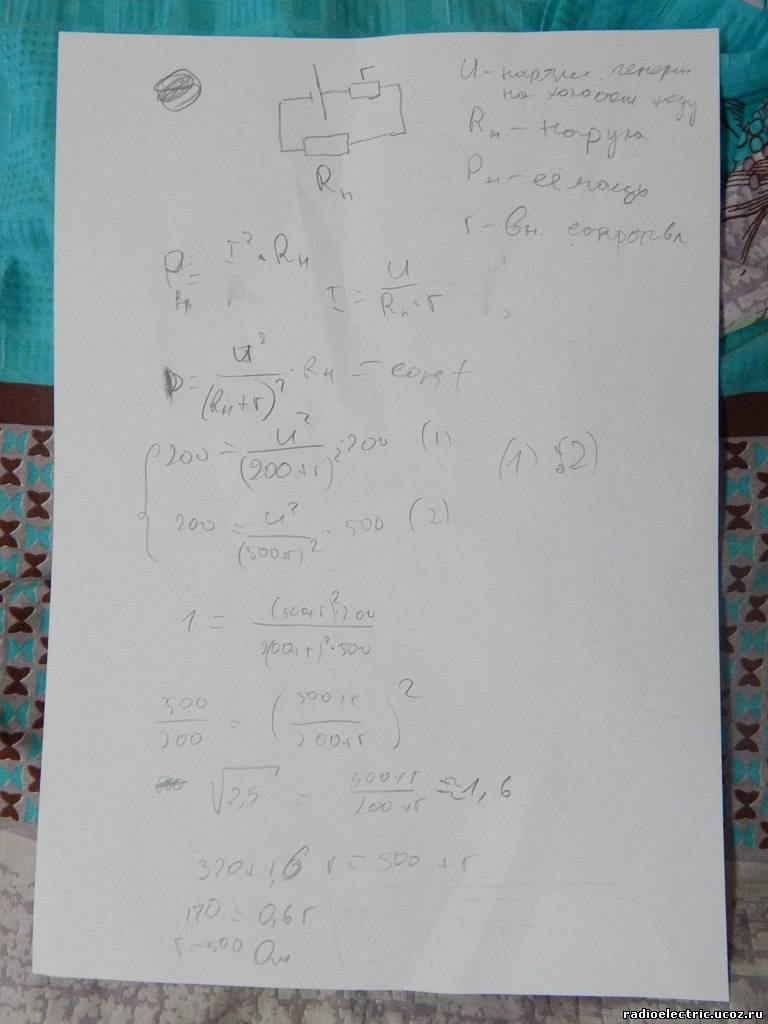 r
Rн
U - напряж. генерат
на холостом ходу
Rн - нагрузк
Pн - её мощь
r - вн. сопротивл
P = I² · Rн
Rн
I = U / (Rн + r)
P = U² / (Rн + r)² · Rн = const
200 = U² / (200 + r)² · 200 (1)
(1) : (2)
200 = U² / (500 + r)² · 500 (2)
1 = (500 + r)² · 200 / (200 + r)² · 500
500 / 200 = ((500 + r) / (200 + r))²
√2,5 = (500 + r) / (200 + r) ≈ 1,6
320 + 1,6 r = 500 + r
180 = 0,6 r
r = 300 Ом
radioelectric.ucoz.ru